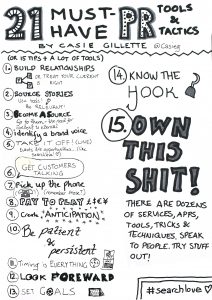 21 MUST-HAVE PR TOOLS & TACTICS
BY CASIE GILLETTE @Casieg
(OR 15 TIPS + A LOT OF TOOLS)
1. BUILD RELATIONSHIPS
OR TREAT YOUR CURRENT
RIGHT
2. SOURCE STORIES
Use tools!
Be RELEVANT!
3. BECOME A SOURCE
4. identify a brand voice
5. TAKE IT OFF(LINE)
6. GET CUSTOMERS TALKING
7. Pick up the phone
(remember those?)
8. PAY TO PLAY
9. Create "ANTICIPATION"
10. Be patient & persistent
11. Timing is EVERYTHING
12. LOOK FOREWARD
13. SET GOALS
14. KNOW THE HOOK
15. OWN THIS SHIT!
THERE ARE DOZENS
OF SERVICES, APPS,
TOOLS, TRICKS &
TECHNIQUES, SPEAK
TO PEOPLE. TRY STUFF
OUT!
#searchlove